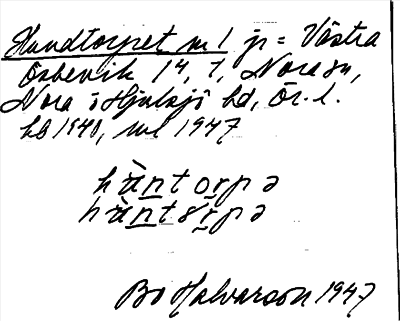 Hundtorpet nr 1 jr = Västra
Ösbevik 1⁴, 1, Nora sn,
Nora o Hjulsjö bd, Ör. l.
hb 1940, ml 1947
hùntorpə
hùntɤrpə
Bo Halvarson 1947